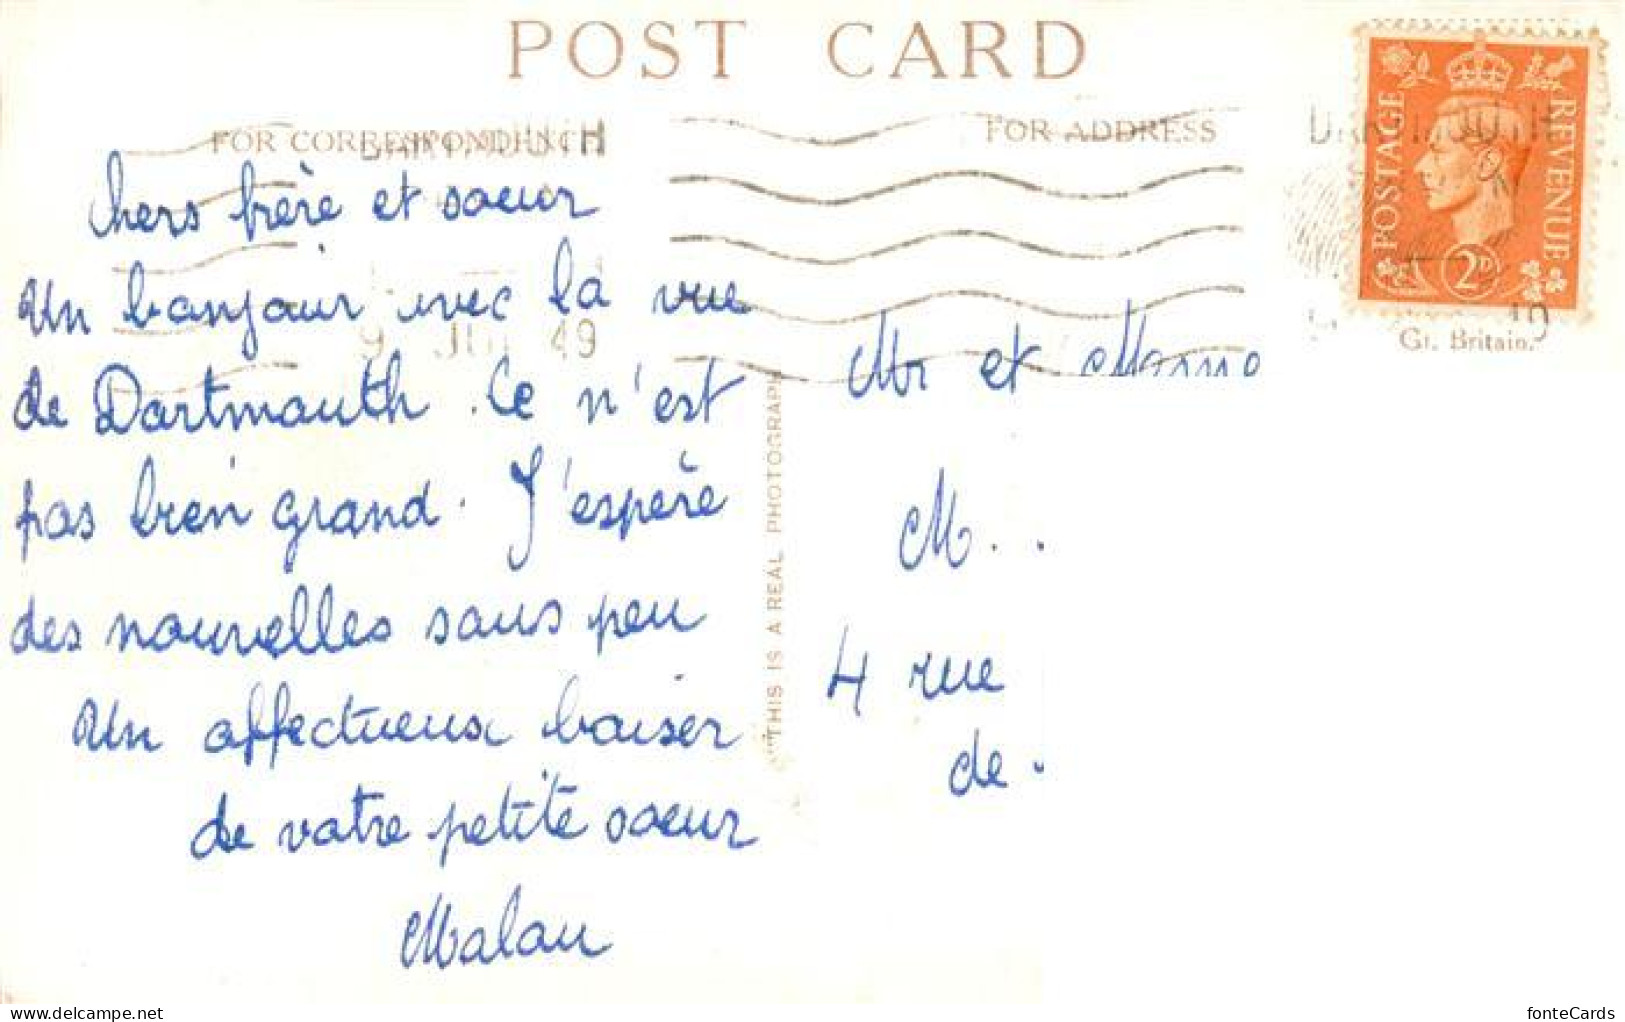 POST CARD
FOR CORRESPONDENCE
FOR ADDRESS
DARTMOUTH
DARTMOUTH
POSTAGE
REVENUE
2D
9 JUL 49
Gt. Britain.
Chers frère et soeur
Un bonjour avec la vue
de Dartmouth. Ce n'est
pas bien grand. J'espère
des nouvelles sous peu
Un affectueux baiser
de votre petite soeur
Malou
"THIS IS A REAL PHOTOGRAPH
Mr et Mme
M..
4 rue
de.
www.delcampe.net
fonteCards